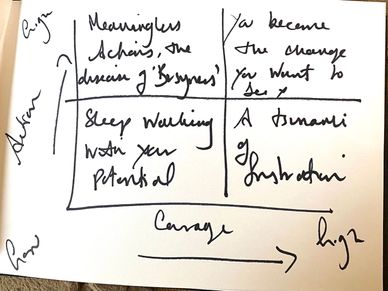 high
Meaningless
Actions, the
disease of 'Busyness'
You became
the change
you want to
see
Action
Sleep walking
with your
potential
A tsunami
of
frustration
low
Courage
high